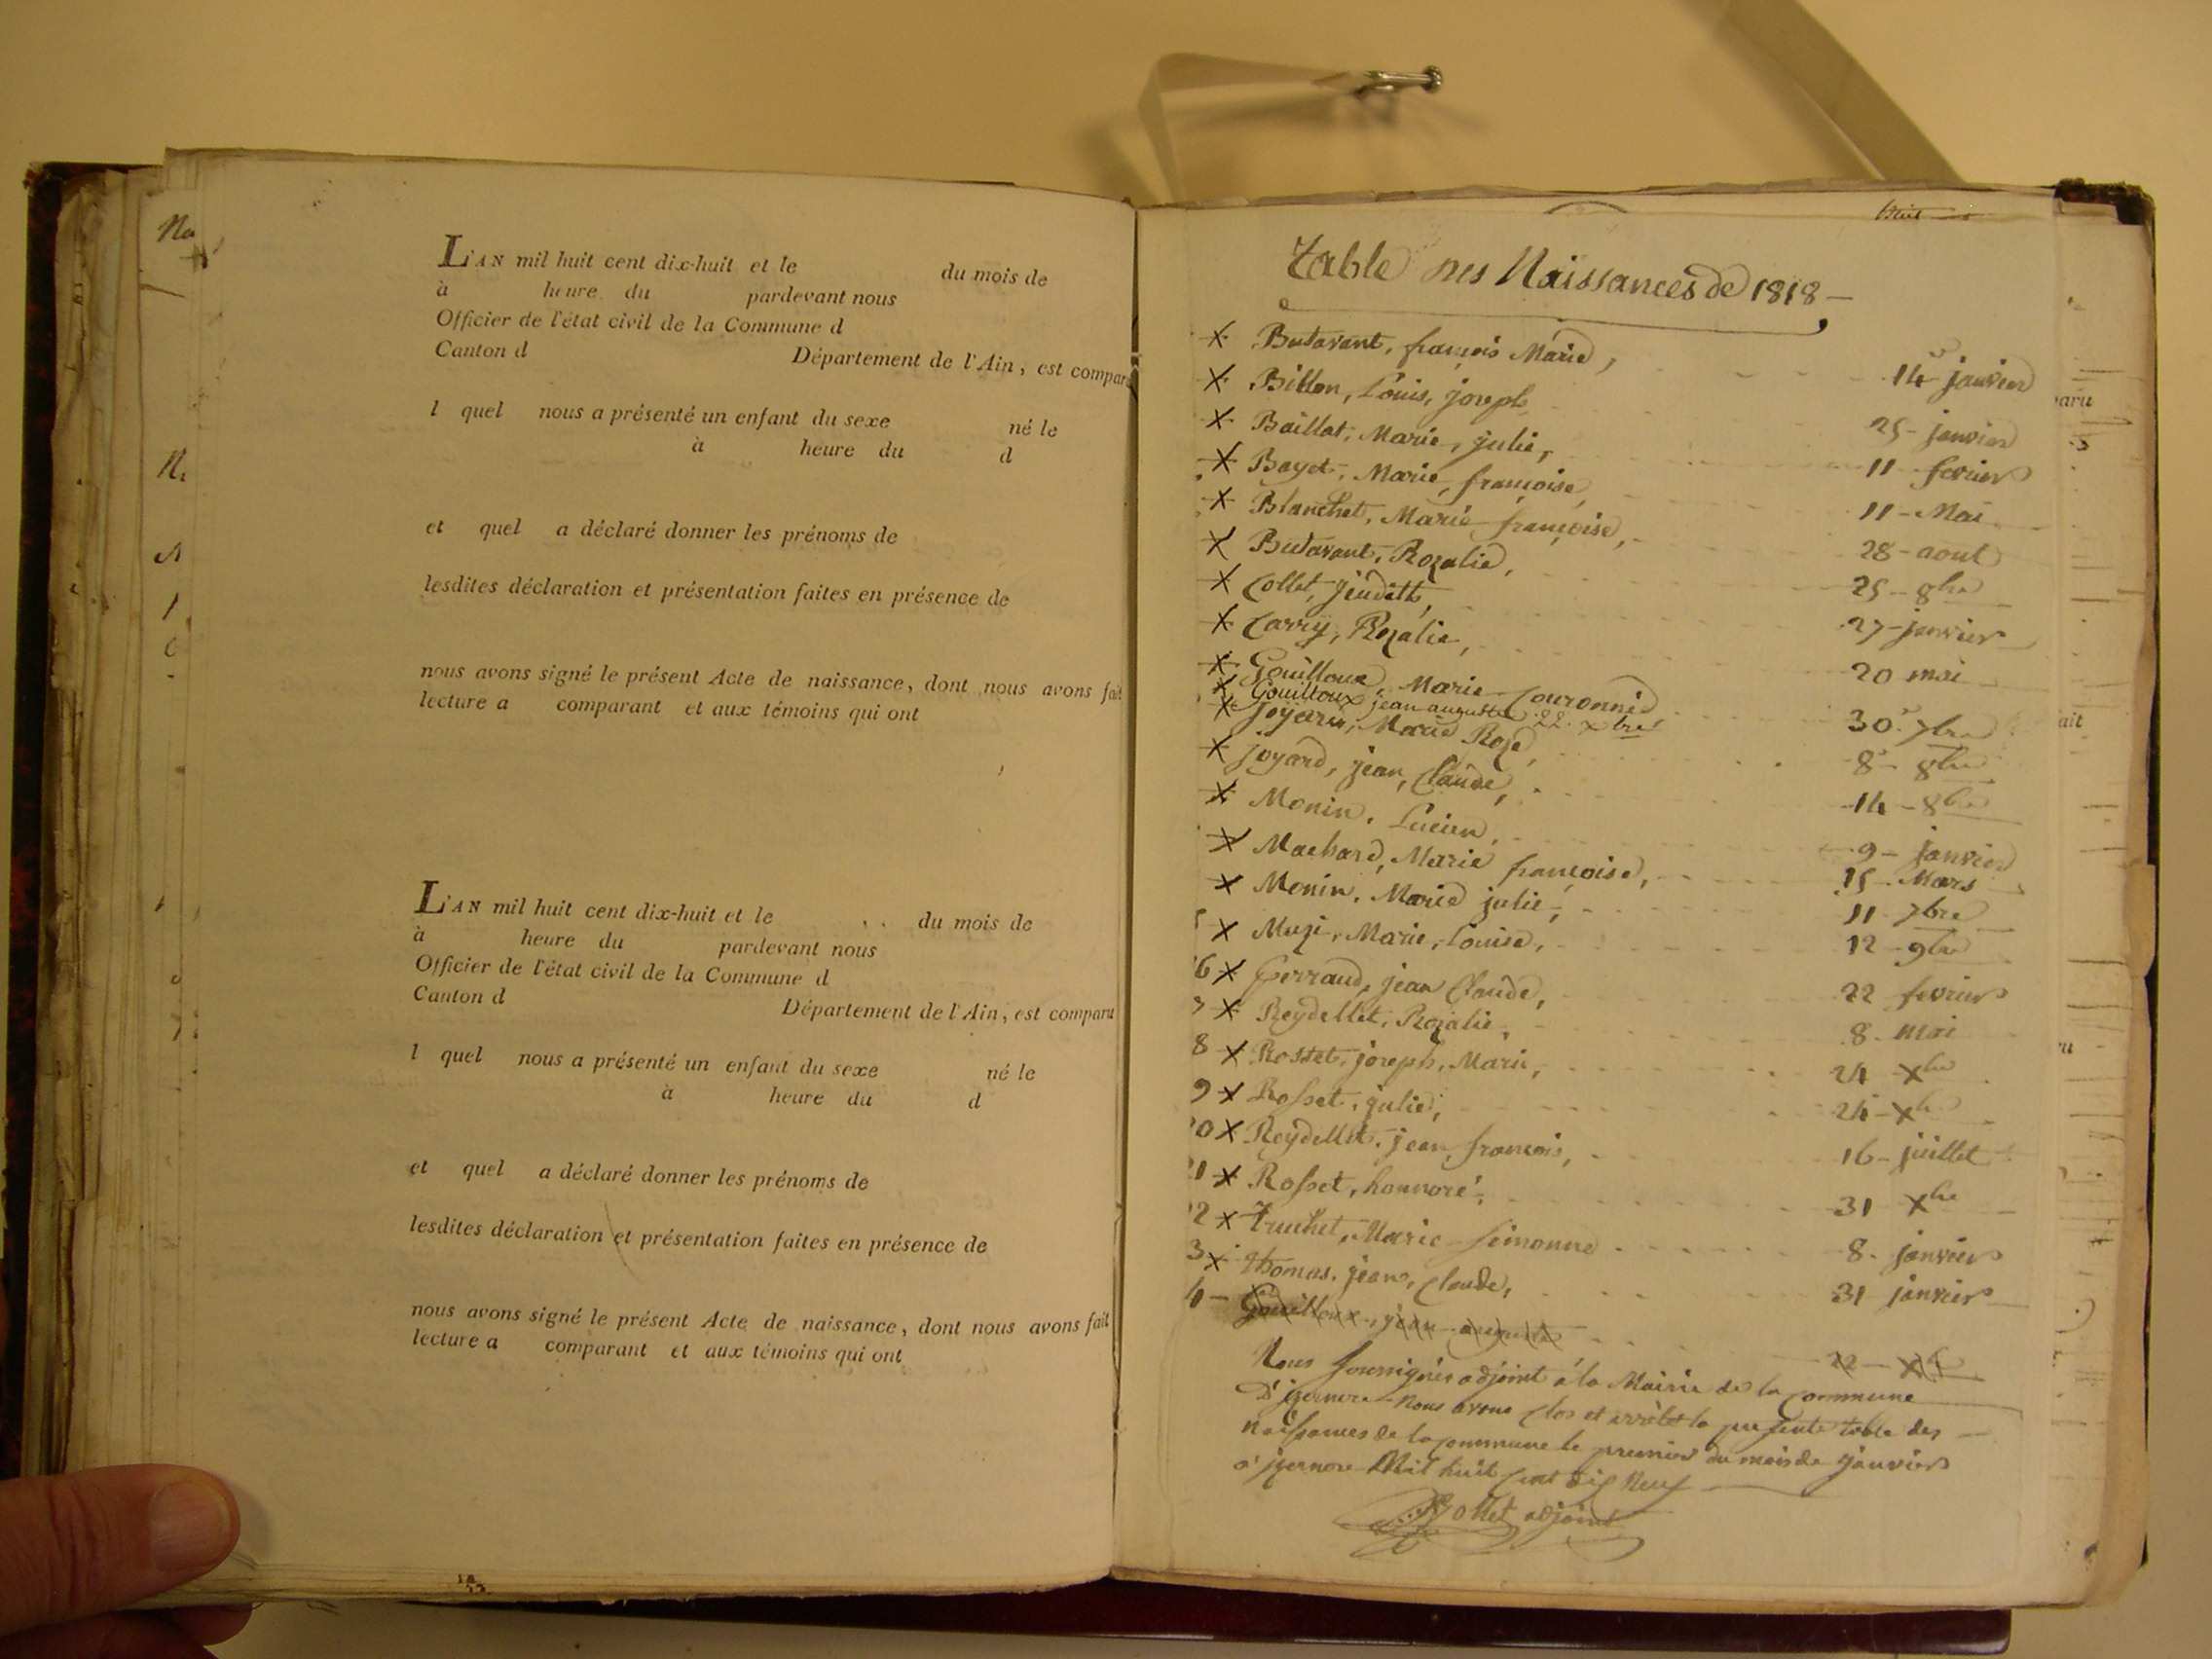 L'AN mil huit cent dix-huit et le du mois de
à heure du pardevant nous
Officier de l'état civil de la Commune d
Canton d Département de l'Ain, est compar
l quel nous a présenté un enfant du sexe né le
à heure du d
et quel a déclaré donner les prénoms de
lesdites déclaration et présentation faites en présence de
nous avons signé le présent Acte de naissance, dont nous avons fait
lecture a comparant et aux témoins qui ont
L'AN mil huit cent dix-huit et le du mois de
à heure du pardevant nous
Officier de l'état civil de la Commune d
Canton d Département de l'Ain, est comparu
l quel nous a présenté un enfant du sexe né le
à heure du d
et quel a déclaré donner les prénoms de
lesdites déclaration et présentation faites en présence de
nous avons signé le présent Acte de naissance, dont nous avons fait
lecture a comparant et aux témoins qui ont
Table des Naissances de 1818 -
x Butavant, françois Marie, 14 janvier
x Billon, Louis, joseph 25 - janvier
x Baillat, Marie, julie, 11 fevrier
x Bayet, Marie, françoise, 11 - Mai
x Blanchet, Marie françoise, 28 - aout
x Butavant, Rozalie, 25 - 8bre
x Collet, jeudith, 27 - janvier
x Carry, Rozalie, 20 mai
x Gouilloux, Marie Couronne 30 7bre
x Gouilloux jean auguste 22 xbre
x Joyard, Marie Roze, 8 - 8bre
x joyard, jean, Claude, 14 - 8bre
x Monin, Lucien, 9 - janvier
x Machard, Marie françoise, 15 - Mars
x Monin, Marie julie, 11 7bre
x Muzi, Marie, Louise, 12 - 9bre
6 x Perraud, jean Claude, 22 fevrier
7 x Reydellet, Rozalie, 8 - mai
8 x Rosset, joseph, Marie, 24 Xbre
9 x Rosset, julie, 24 - Xbre
20 x Reydellet, jean, françois, 16 - juillet
21 x Rosset, honnoré, 31 Xbre
22 x Truchet, Marie Simonne 8 - janvier
3 x thomas, jean, Claude, 31 janvier
4 - Gouilloux, jean auguste 22 - Xbre
Nous soussignés adjoint à la Mairie de la Commune
D'izernore Nous avons Clos et arrêté la présente table des
naissances de la commune le premier du mois de janvier
a izernore Mil huit Cent dix Neuf
Collet adjoint